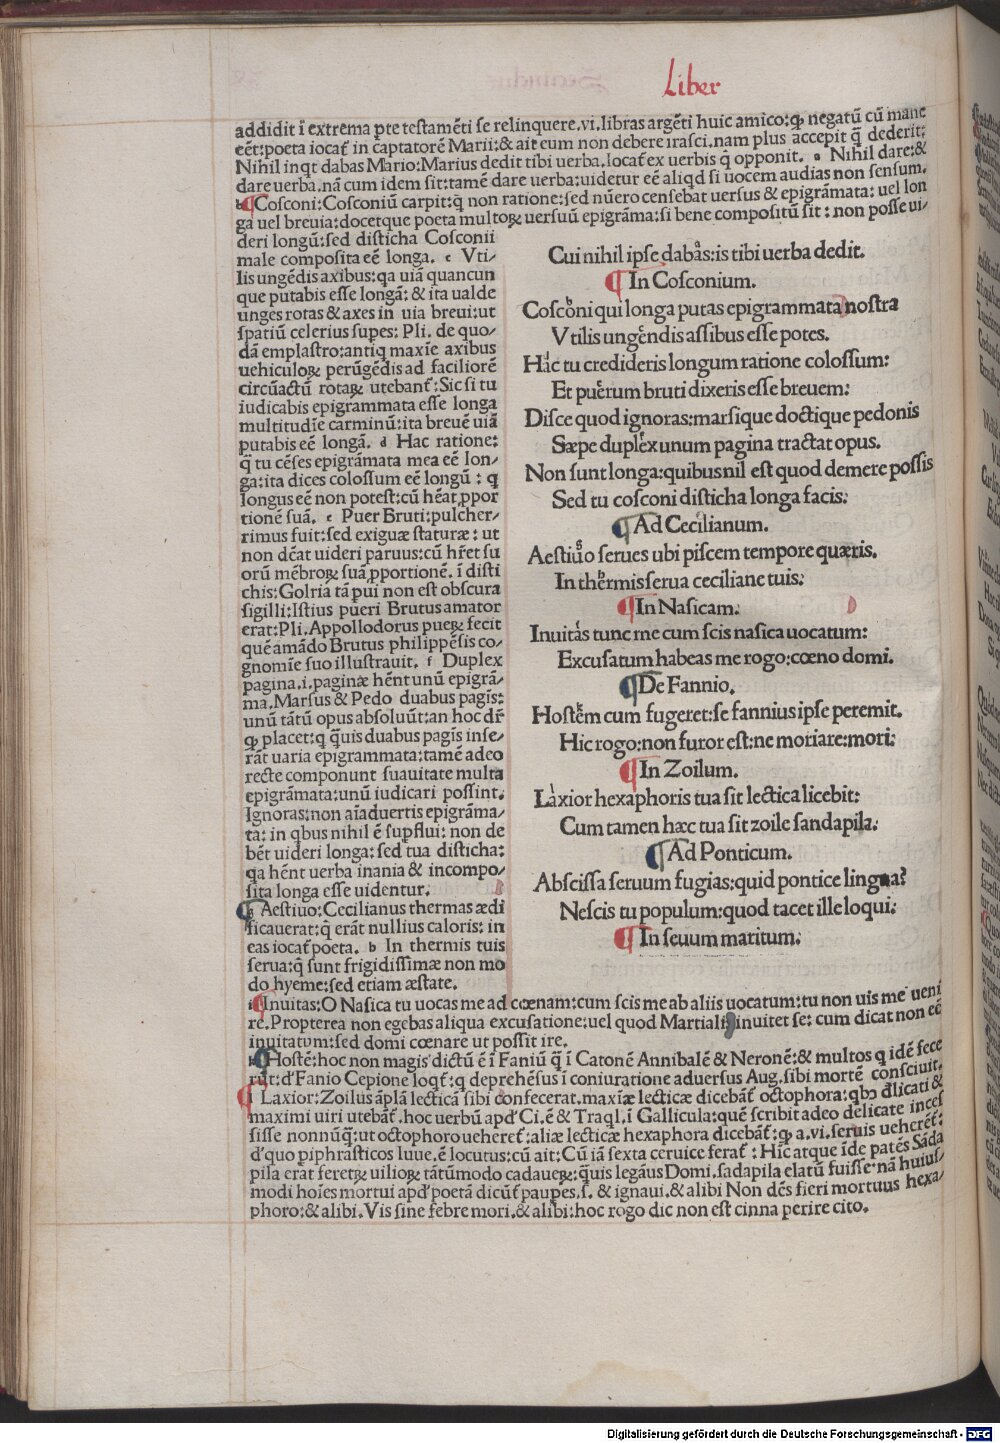 Liber
addidit ĩ extrema ꝑte testamẽti se relinquere.vi.libras argẽti huic amico:ꝙ negatũ cũ mane
eẽt:poeta iocat̃ in captatorẽ Marii:& ait eum non debere irasci.nam plus accepit q̃ dederit:
Nihil inqt dabas Mario:Marius dedit tibi uerba.locat̃ ex uerbis q̃ opponit. a Nihil dare:&
dare uerba.nã cum idem sit:tamẽ dare uerba:uidetur eẽ aliqd si uocem audias non sensum.
Cosconi:Cosconiũ carpit:q̃ non ratione:sed nũero censebat uersus & epigrãmata: uel lon
ga uel breuia:docetque poeta multoꝝ uersuũ epigrãma:si bene compositũ sit : non posse ui/
deri longũ:sed disticha Cosconii
male composita eẽ longa. c Vti/
lis ungẽdis axibus:qa uiã quancun
que putabis esse longã: & ita ualde
unges rotas & axes in uia breui:ut
spatiũ celerius supes: Pli. de quo/
dã emplastro:antiq maxiẽ axibus
uehiculoꝝ perũgẽdis ad faciliorẽ
circũactũ rotaꝝ utebant̃:Sic si tu
iudicabis epigrammata esse longa
multitudĩe carminũ:ita breuẽ uiã
putabis eẽ longã. d Hac ratione:
q̃ tu cẽses epigrãmata mea eẽ lon/
ga:ita dices colossum eẽ longũ : q
longus eẽ non potest:cũ hẽat ꝓpor
tionẽ suã. e Puer Bruti:pulcher/
rimus fuit:sed exiguæ staturæ: ut
non dẽat uideri paruus:cũ hr̃et su
orũ mẽbroꝝ suã ꝓportionẽ. ĩ disti
chis:Golria tã pui non est obscura
sigilli:Istius pueri Brutus amator
erat:Pli.Appollodorus pueꝝ fecit
quẽ amãdo Brutus philippẽsis co/
gnomĩe suo illustrauit. f Duplex
pagina.i.paginæ hẽnt unũ epigrã/
ma.Marsus & Pedo duabus pagis:
unũ tãtũ opus absoluũt:an hoc dr̃
ꝙ placet:q q̃uis duabus pagis inse/
rãt uaria epigrammata:tamẽ adeo
recte componunt suauitate multa
epigrãmata:unũ iudicari possint.
Ignoras:non aĩaduertis epigrãma/
ta: in qbus nihil ẽ supflui: non de
bẽt uideri longa: sed tua disticha:
qa hẽnt uerba inania & incompo/
sita longa esse uidentur.
Aestiuo:Cecilianus thermas ædi
ficauerat:q̃ erãt nullius caloris: in
eas iocat̃ poeta. b In thermis tuis
serua:q̃ sunt frigidissimæ non mo
do hyeme:sed etiam æstate.
Cui nihil ipse dabas:is tibi uerba dedit.
In Cosconium.
Cosconi qui longa putas epigrammata nostra
Vtilis ungendis assibus esse potes.
Hac tu credideris longum ratione colossum:
Et puerum bruti dixeris esse breuem:
Disce quod ignoras:marsique doctique pedonis
Sæpe duplex unum pagina tractat opus.
Non sunt longa:quibus nil est quod demere possis
Sed tu cosconi disticha longa facis:
Ad Cecilianum.
Aestiuo serues ubi piscem tempore quæris.
In thermis serua ceciliane tuis:
In Nasicam.
Inuitas tunc me cum scis nasica uocatum:
Excusatum habeas me rogo:cœno domi.
De Fannio.
Hostem cum fugeret:se fannius ipse peremit.
Hic rogo:non furor est:ne moriare:mori:
In Zoilum.
Laxior hexaphoris tua sit lectica licebit:
Cum tamen hæc tua sit zoile sandapila:
Ad Ponticum.
Abscissa seruum fugias:quid pontice lingua?
Nescis tu populum:quod tacet ille loqui:
In seuum maritum.
Inuitas:O Nasica tu uocas me ad cœnam:cum scis me ab aliis uocatum:tu non uis me ueni
re.Propterea non egebas aliqua excusatione:uel quod Martialis inuitet se: cum dicat non eẽ
inuitatum:sed domi cœnare ut possit ire.
Hostẽ:hoc non magis dictũ ẽ ĩ Faniũ q̃ ĩ Catonẽ Annibalẽ & Neronẽ:& multos q idẽ fece
rũt:d' Fanio Cepione loqt̃:q deprehẽsus ĩ coniuratione aduersus Aug.sibi mortẽ consciuit.
Laxior:Zoilus ãplã lecticã sibi confecerat.maxiæ lecticæ dicebãt̃ octophora:qbꝰ dl̃icati &
maximi uiri utebãt̃.hoc uerbũ apd' Ci.ẽ & Traql.ĩ Gallicula:quẽ scribit adeo delicate inces
sisse nonnũq̃:ut octophoro ueheret̃:aliæ lecticæ hexaphora dicebãt̃:ꝙ a.vi.seruis ueherẽt̃:
d'quo piphrasticos Iuue.ẽ locutus:cũ ait:Cũ iã sexta ceruice ferat̃ : Hĩc atque ĩde patẽs Sãda
pila erat feretꝝ uilioꝝ tãtũmodo cadaueꝝ:q̃uis legãus Domi.sadapila elatũ fuisse.nã huius/
modi hoĩes mortui apd' poetã dicũt̃ paupes.s. & ignaui.& alibi Non dẽs fieri mortuus hexa/
phoro:& alibi.Vis sine febre mori.& alibi:hoc rogo dic non est cinna perire cito.
Digitalisierung gefördert durch die Deutsche Forschungsgemeinschaft - DFG